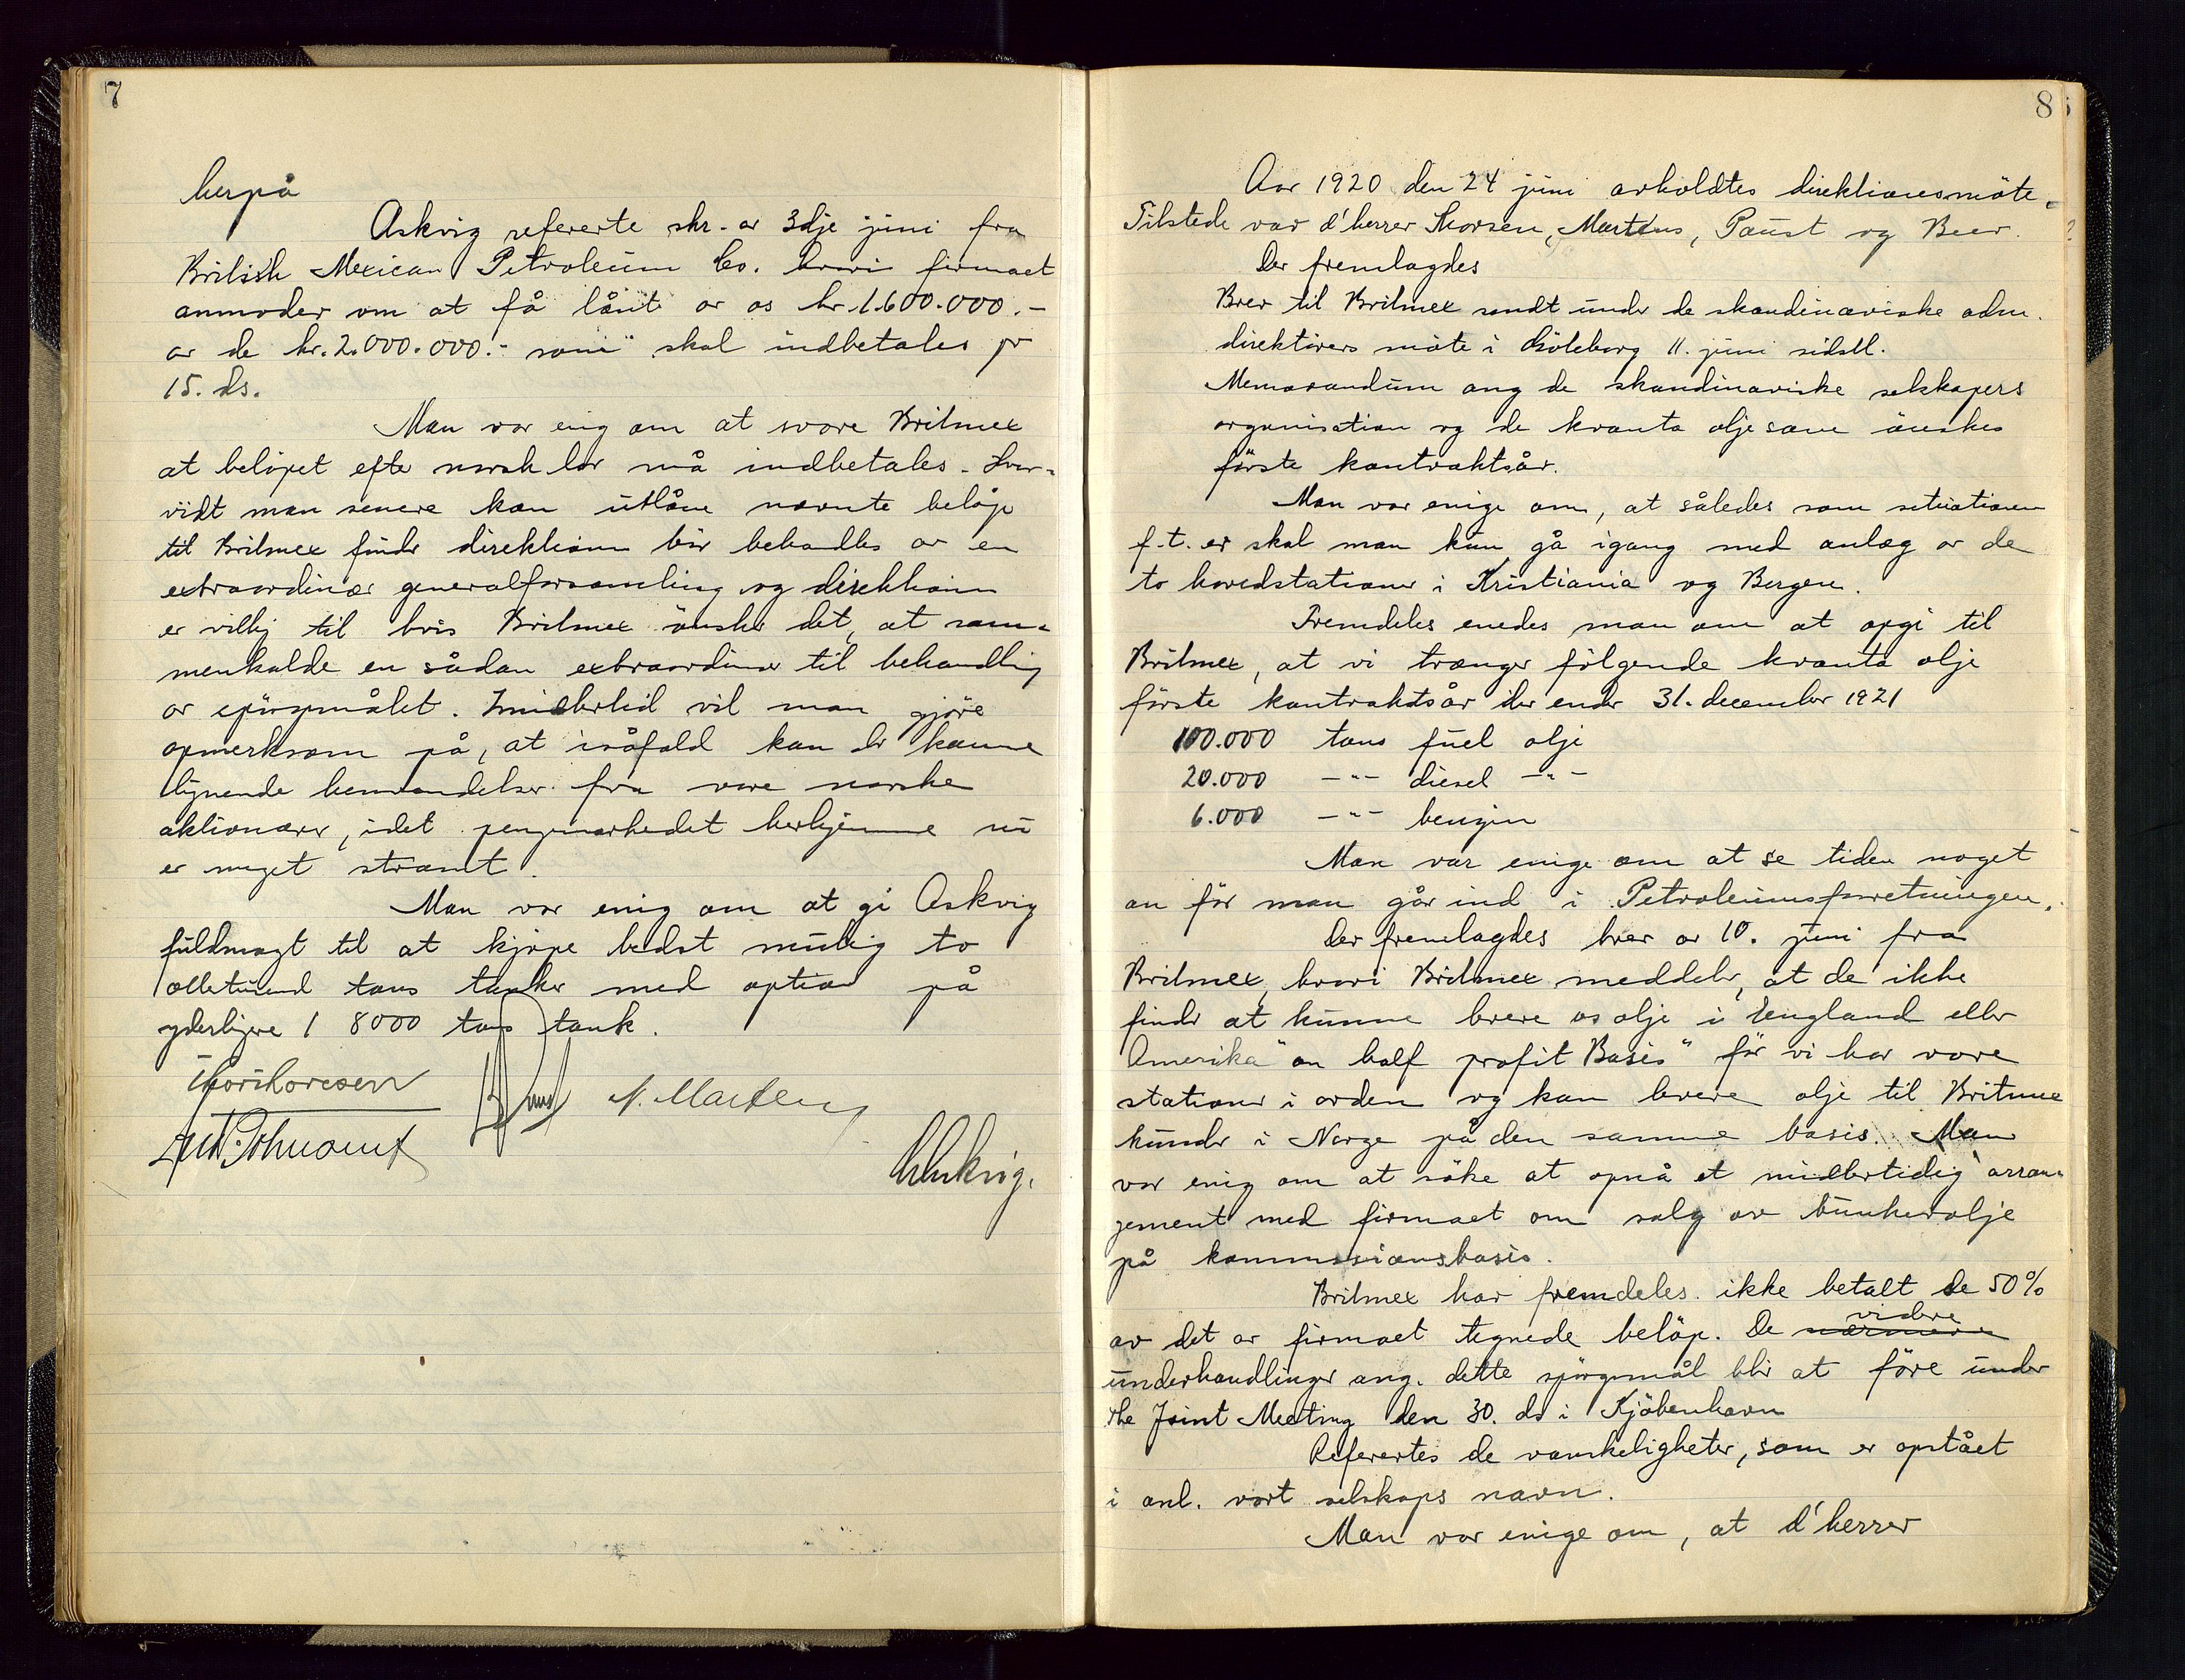 7
herpå
Askvig refererte skr. av 3dje juni fra
British Mexican Petroleum Co. hvori firmaet
anmoder om at få lånt av os kr. 1.600.000.-
av de kr. 2.000.000.- som skal indbetales pr
15. ds.
Man var enig om at svare Britmex
at beløpet efter norsk lov må indbetales. Hvor-
vidt man senere kan utlåne nævnte beløp
til Britmex finder direktionen bør behandles av en
extraordinær generalforsamling og direktionen
er villig til hvis Britmex ønsker det, at sam-
menkalde en sådan extraordinær til behandling
av spørsmålet. Imidlertid vil man gjøre
opmerksom på, at isåfald kan der komme
lignende henvendelser fra vore norske
aktionærer, idet pengemarkedet herhjemme nu
er meget stramt.
Man var enig om at gi Askvig
fuldmagt til at kjøpe bedst mulig to
ottetusind tons tanker med option på
yderligere 1 8000 tons tank.
Thor Thoresen
N. Martens
CAskvig.
8
Aar 1920 den 24 juni avholdtes direktionsmøte.
Tilstede var d'herrer Thorsen, Martens, Paust og Beer.
Der fremlagdes
Brev til Britmex sendt under de skandinaviske adm.
direktørers møte i Göteborg 11. juni sidstl.
Memorandum ang de skandinaviske selskapers
organisation og de kvanta olje som ønskes
første kontraktsår.
Man var enige om, at således som situationen
f.t. er skal man kun gå igang med anlæg av de
to hovedstationer i Kristiania og Bergen.
Fremdeles enedes man om at opgi til
Britmex, at vi trænger følgende kvanta olje
første kontraktsår der ender 31. december 1921
100.000 tons fuel olje
20.000 -"- diesel -"-
6.000 -"- bensin
Man var enige om at se tiden noget
an før man går ind i Petroleumsforretningen.
Der fremlagdes brev av 10. juni fra
Britmex, hvori Britmex meddeler, at de ikke
finder at kunne levere os olje i England eller
Amerika "on half profit Basis" før vi har vore
stationer i orden og kan levere olje til Britmex
kunder i Norge på den samme basis. Man
var enig om at søke at opnå et midlertidig arran-
gement med firmaet om salg av bunkersolje
på kommissionsbasis.
Britmex har fremdeles ikke betalt de 50%
av det av firmaet tegnede beløp. De nærmere videre
underhandlinger ang. dette spørgsmål blir at føre under
the Joint Meeting den 30. ds i Kjøbenhavn
Refertes de vanskeligheter, som er opstået
i anl. vort selskaps navn.
Man var enige om, at d'herrer